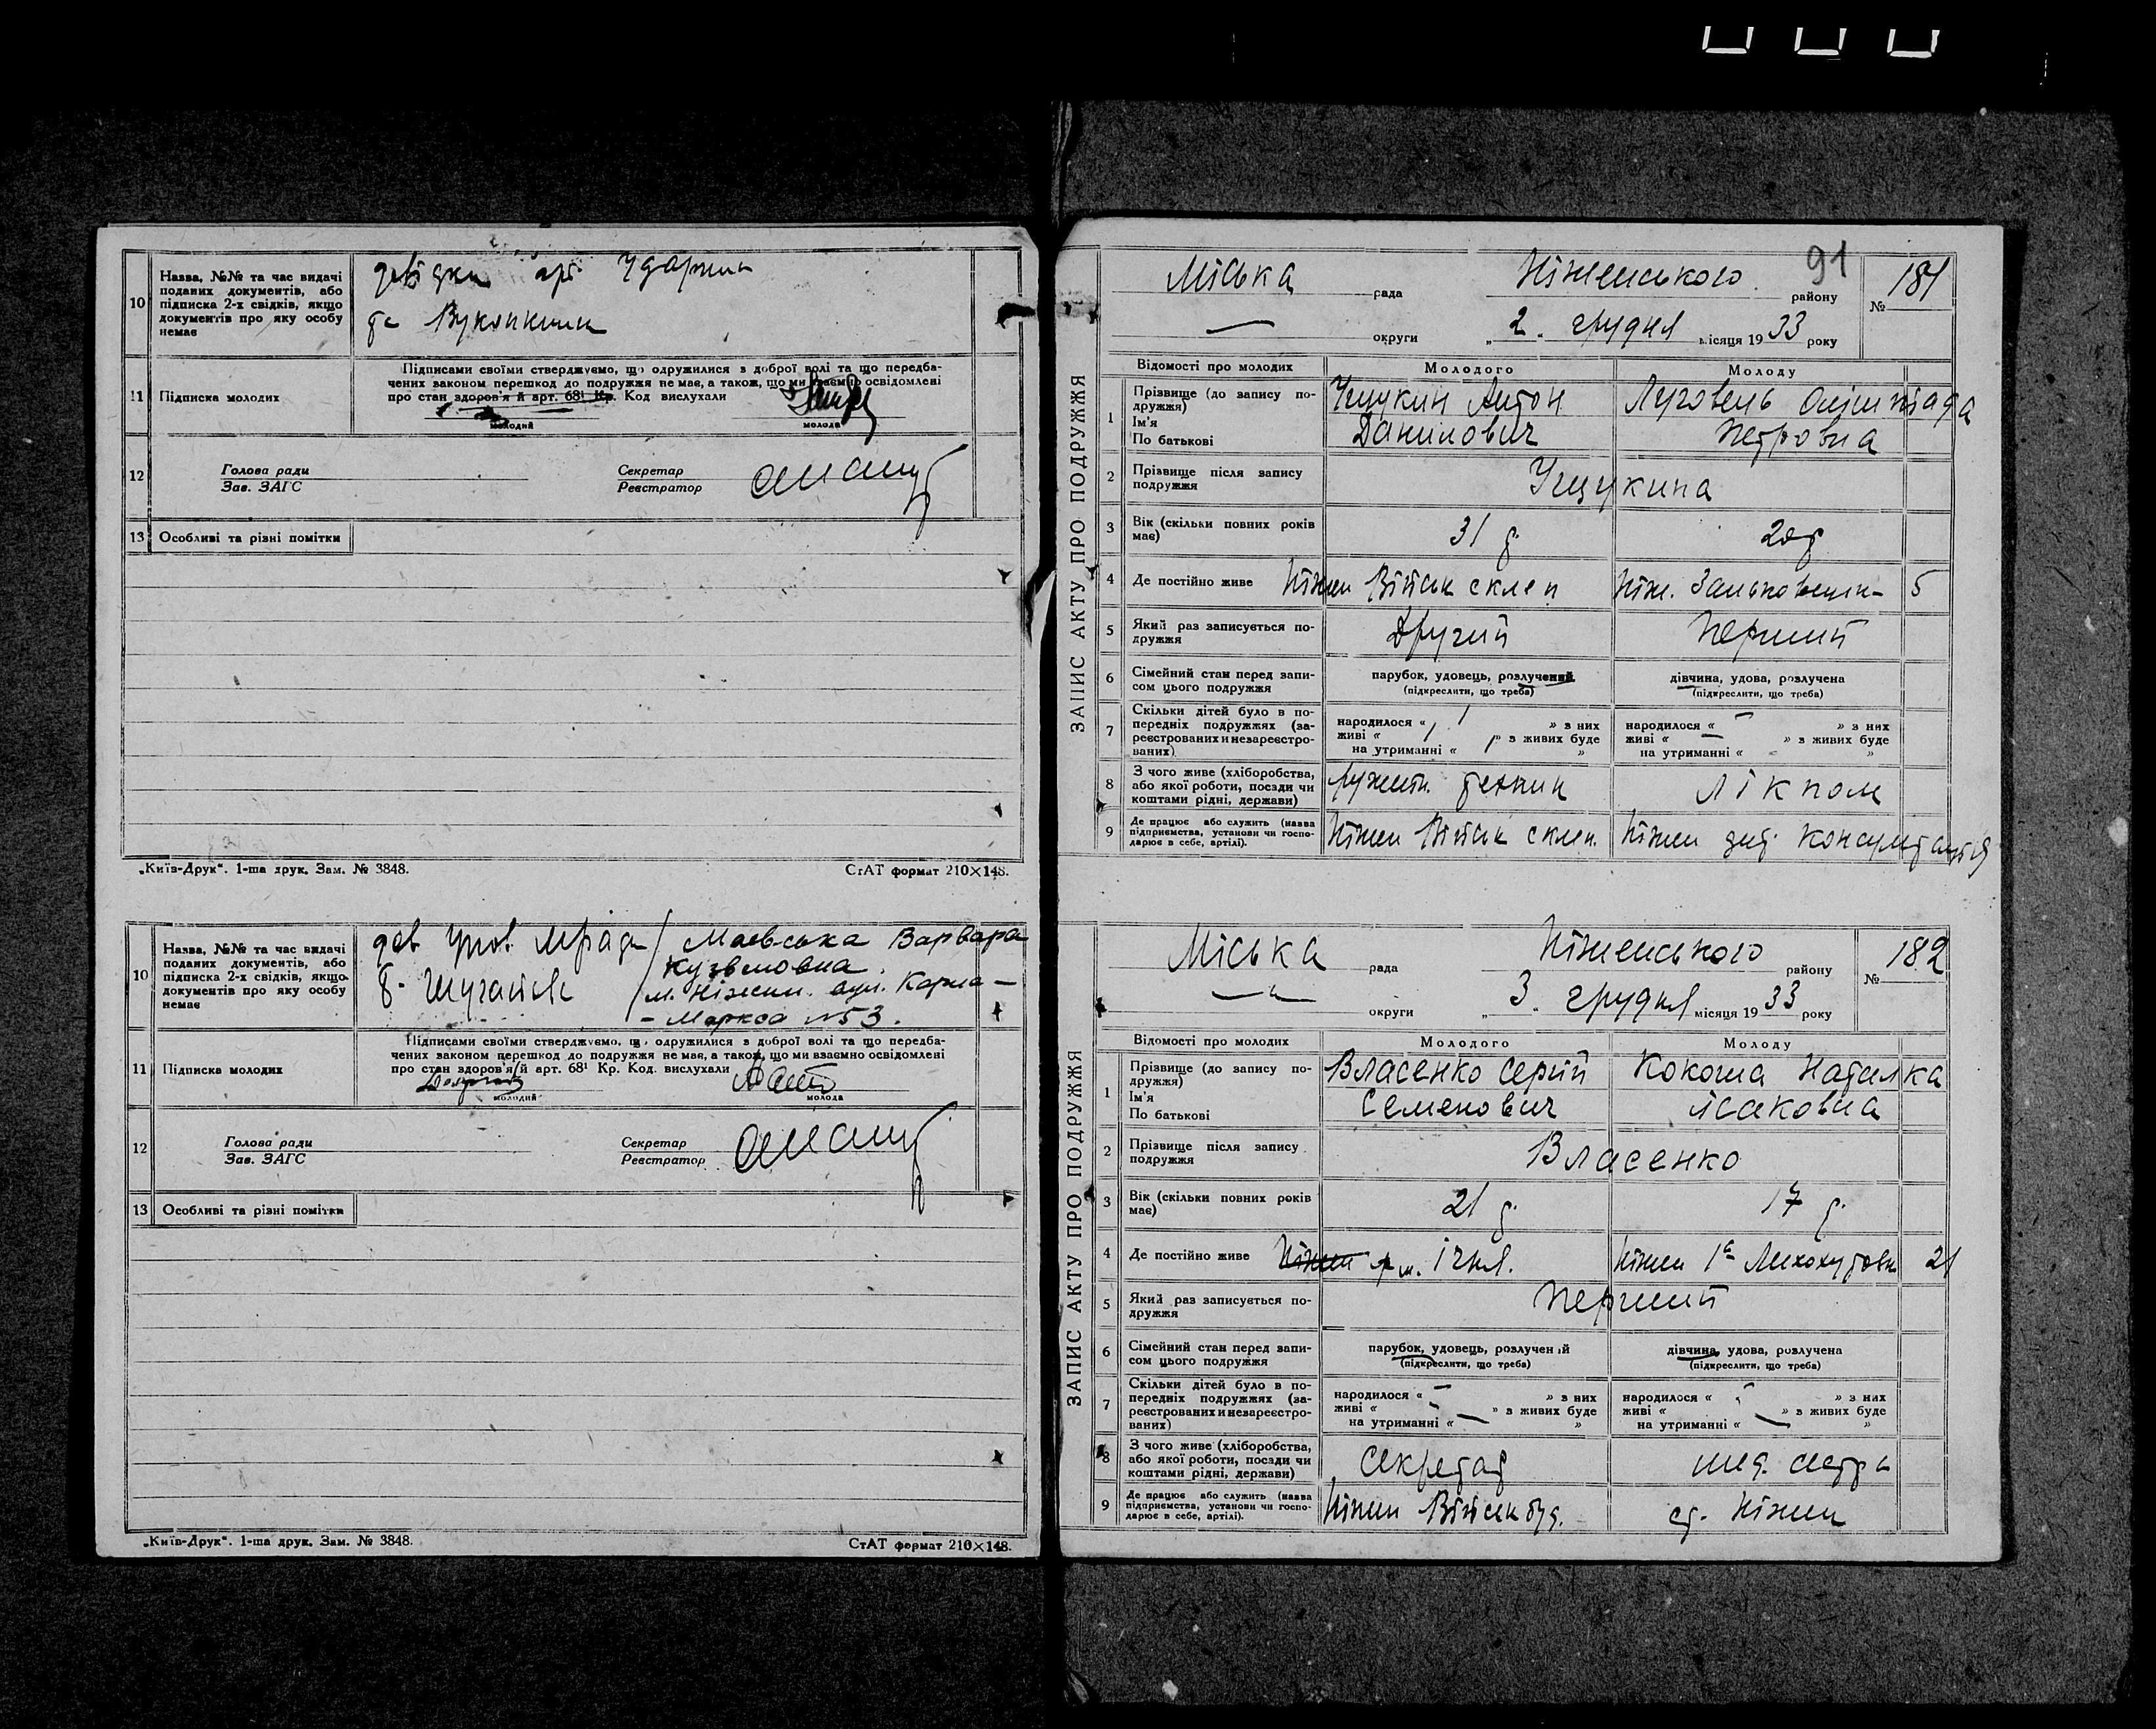 10 Назва, №№ та час видачі поданих документів, або підписка 2-х свідків, якщо документів про яку особу немає
довідки арт. Ударник
11 Підписка молодих
Підписами своїми стверджуємо, що одружилися з доброї волі та що передба-
чених законом перешкод до подружжя не має, а також, що ми взаємно освідомлені
про стан здоров'я й арт. 68¹ Кр. Код вислухали
молодий молода
12 Голова ради Секретар
Зав. ЗАГС Реєстратор
13 Особливі та різні помітки
„Київ-Друк". 1-ша друк. Зам. № 3848. СтАТ формат 210×148.
10 Назва, №№ та час видачі поданих документів, або підписка 2-х свідків, якщо документів про яку особу немає
Маєвська Варвара
Кузьмовна.
м. Ніжин. вул. Карла –
– Маркса №53.
11 Підписка молодих
Підписами своїми стверджуємо, що одружилися з доброї волі та що передба-
чених законом перешкод до подружжя не має, а також, що ми взаємно освідомлені
про стан здоров'я й арт. 68¹ Кр. Код. вислухали
молодий молода
12 Голова ради Секретар
Зав. ЗАГС Реєстратор
13 Особливі та різні помітки
„Київ-Друк". 1-ша друк. Зам. № 3848. СтАТ формат 210×148.
ЗАПИС АКТУ ПРО ПОДРУЖЖЯ
91
Міська рада Ніженського району № 181
— округи „2" грудня місяця 1933 року
Відомості про молодих Молодого Молоду
1 Прізвище (до запису подружжя) Ім'я По батькові
Антон Данилович
Луговець Олімпіада Петровна
2 Прізвище після запису подружжя
3 Вік (скільки повних років має) 31 р. 20 р.
4 Де постійно живе Ніжен Військ склеп Ніж. 5
5 Який раз записується подружжя Другий Перший
6 Сімейний стан перед записом цього подружжя
парубок, удовець, розлучений (підкреслити, що треба)
дівчина, удова, розлучена (підкреслити, що треба)
7 Скільки дітей було в попередніх подружжях (зареєстрованих и незареєстрованих)
народилося « 1 » з них живі « 1 » з живих буде на утриманні « »
народилося « – » з них живі « – » з живих буде на утриманні « – »
8 З чого живе (хліборобства, або якої роботи, посади чи коштами рідні, держави)
технік Лікпом
9 Де працює або служить (назва підприємства, установи чи господарює в себе, артілі).
Ніжен Військ склеп. Ніжен дит. консультація
ЗАПИС АКТУ ПРО ПОДРУЖЖЯ
Міська рада Ніженського району № 182
—"— округи „3" грудня місяця 1933 року
Відомості про молодих Молодого Молоду
1 Прізвище (до запису подружжя) Ім'я По батькові
Власенко Сергій Семенович
Кокоша Наталка Ісаковна
2 Прізвище після запису подружжя Власенко
3 Вік (скільки повних років має) 21 р. 17 р.
4 Де постійно живе м. Ічня. Ніжен 21
5 Який раз записується подружжя Перший
6 Сімейний стан перед записом цього подружжя
парубок, удовець, розлучений (підкреслити, що треба)
дівчина, удова, розлучена (підкреслити, що треба)
7 Скільки дітей було в попередніх подружжях (зареєстрованих и незареєстрованих)
народилося « – » з них живі « – » з живих буде на утриманні « – »
народилося « – » з них живі « » з живих буде на утриманні « – »
8 З чого живе (хліборобства, або якої роботи, посади чи коштами рідні, держави)
Секретар мед. сестра
9 Де працює або служить (назва підприємства, установи чи господарює в себе, артілі).
Ніжен ст. Ніжен